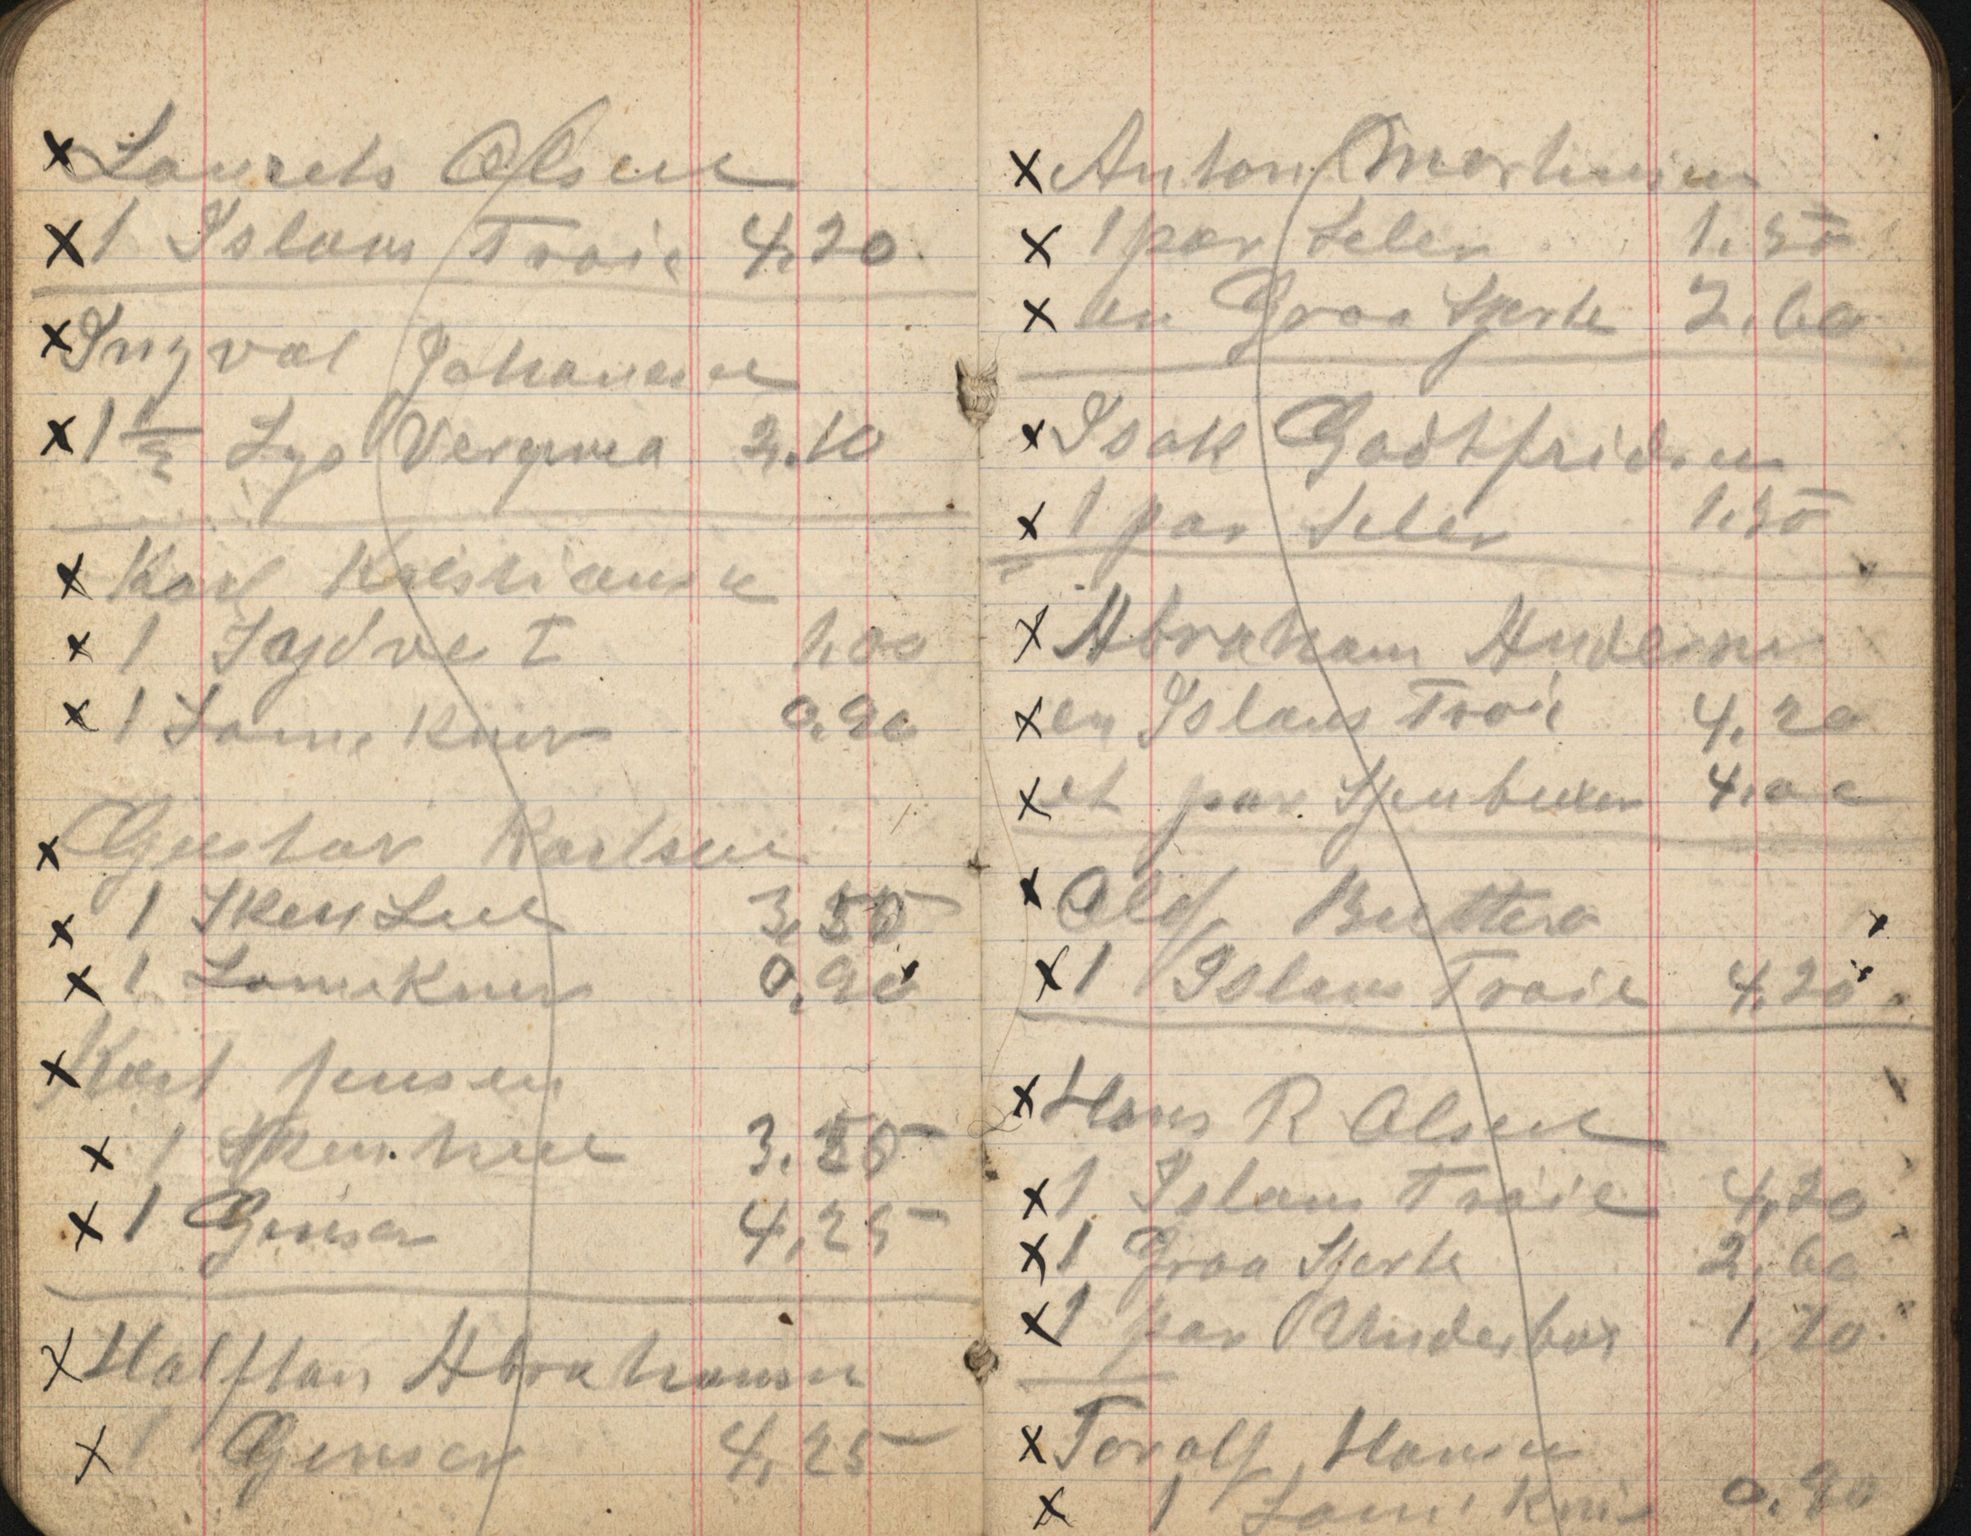 x Laurets Olsen
x 1 Islans Troie 4,20
x Ingval Johansen
x 1 1/2 Lys Vergvea 2,10
x Karl Kristiansen
x 1 Sydvest 1,00
x 1 Lomekniv 0,90
x Gustav Karlsen
x 1 Sken 3,50
x 1 Lomekniv 0,90
x Karl Jensen
x 1 Sken hue 3,50
x 1 Genser 4,25
x Halftan Abrahamsen
x 1 Genser 4,25
x Anton Mortensen
x 1 par Seler 1,50
x en Graa Sjorte 2,60
x Isak Godtfridsen
x 1 par Seler 1.50
x Abraham Andersen
x en Islans Troie 4,20
x et par 4,00
x Olaf Buttero x
x 1 Islans Troie 4,20
x Hans R Olsen
x 1 Islans Troie 4,20
x 1 Graa Sjorte 2,60
x 1 par Underbox 1,70
x Toralf Hansen
x 1 Lomekniv 0,90